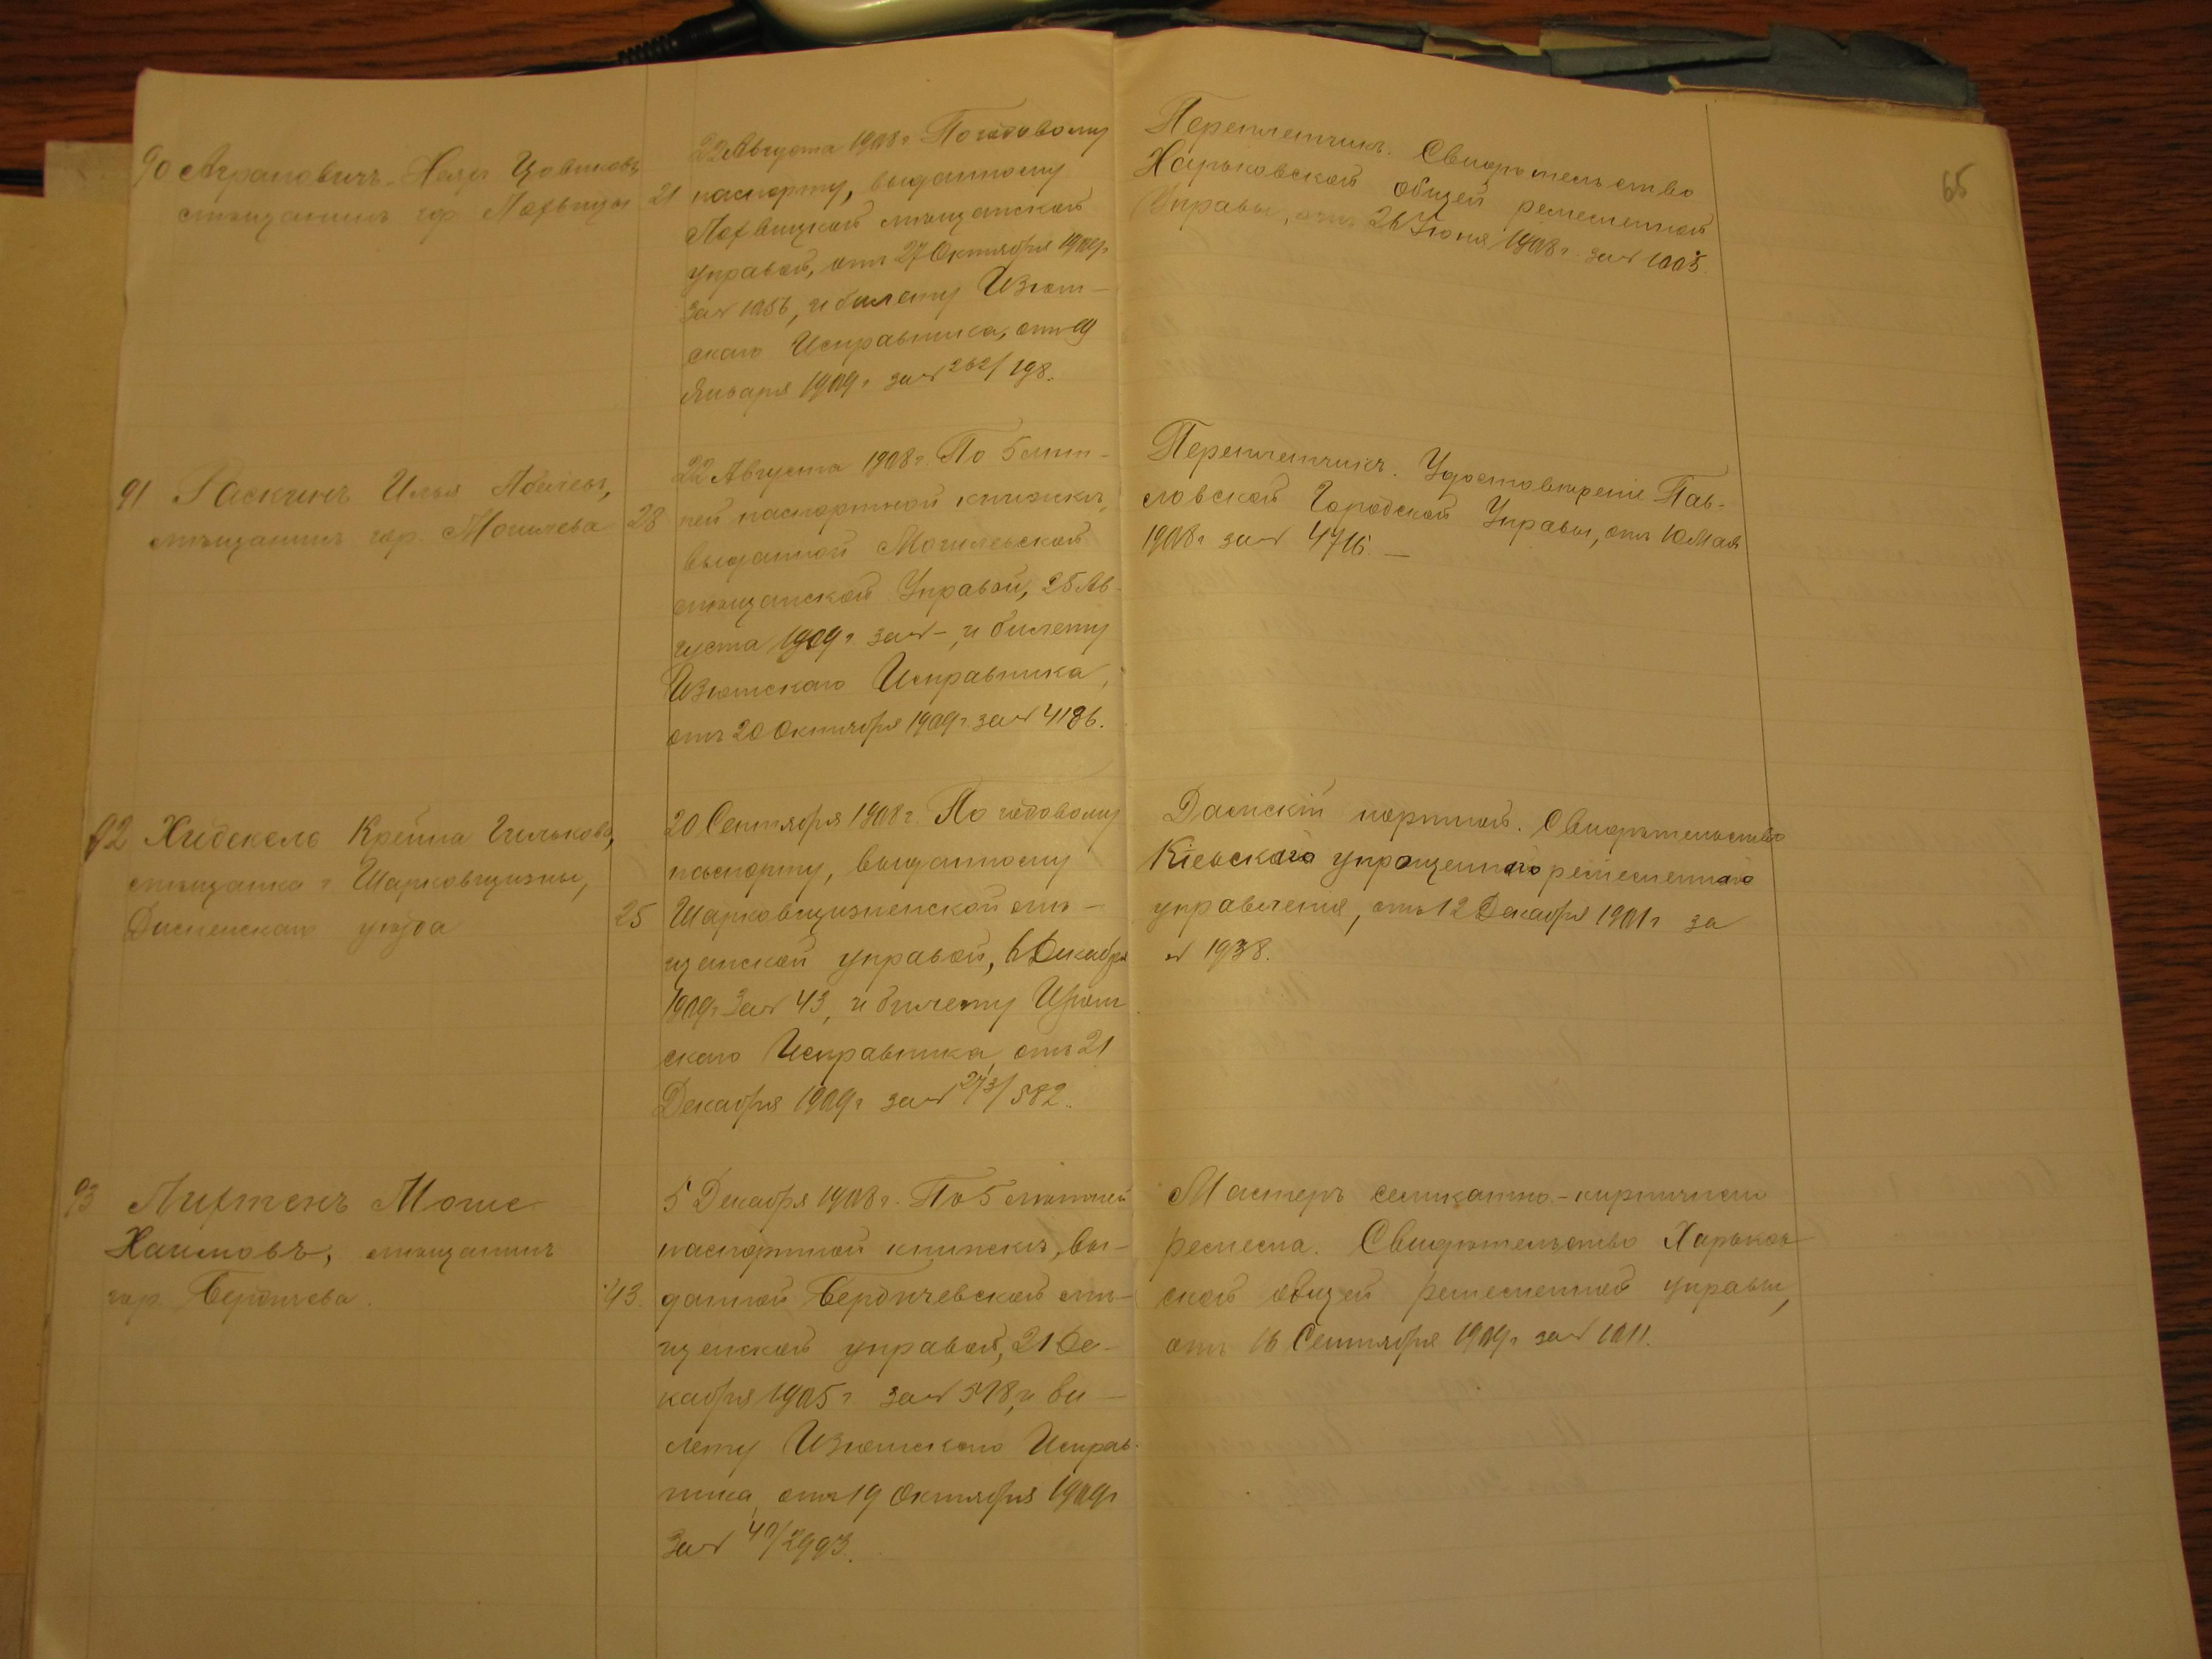 65
90 Аграновичъ
мѣщанинъ гор. Лохвицы
21
22 Августа 1908 г. По годовому
паспорту, выданному
Лохвицкой мѣщанской
управой, отъ 27 Октября 1909 г.
за № 1056, и билету Изюм-
скаго Исправника, отъ 19
Января 1909 г. за № 262/198.
Переплетчикъ. Свидѣтельство
Харьковской общей ремесленной
Управы, отъ 26 Іюня 1908 г. за № 1005.
91 Раскинъ Илья
мѣщанинъ гор. Могилева
28
22 Августа 1908 г. По 5 лѣт-
ней паспортной книжкѣ,
выданной Могилевской
мѣщанской Управой, 25 Ав-
густа 1909 г. за № -, и билету
Изюмскаго Исправника,
отъ 20 Октября 1909 г. за № 4186.
Переплетчикъ. Удостовѣреніе Пав-
ловской Городской Управы, отъ 10 Мая
1908 г. за № 4716. —
92 Хидекель Крейна
мѣщанка г. Шарковщизны,
Дисненскаго уѣзда
25
20 Сентября 1908 г. По годовому
паспорту, выданному
Шарковщизненской мѣ-
щанской управой, 6 Декабря
1909 г. за № 43, и билету Изюм
скаго Исправника, отъ 21
Декабря 1909 г. за № 273/582.
Дамскій портной. Свидѣтельство
Кіевскаго упрощеннаго ремесленнаго
управленія, отъ 12 Декабря 1901 г. за
№ 1938.
93 Лифтенъ
Хаимовъ, мѣщанинъ
гор. Бердичева.
43
5 Декабря 1908 г. По 5 лѣтней
паспортной книжкѣ, вы-
данной Бердичевской мѣ-
щанской управой, 21 Де-
кабря 1905 г. за № 578, и би-
лету Изюмскаго Исправ-
ника, отъ 19 Октября 1909 г.
за № 40/2993.
Мастеръ
ремесла. Свидѣтельство Харьков-
ской общей ремесленной управы,
отъ 16 Сентября 1909 г. за № 1011.